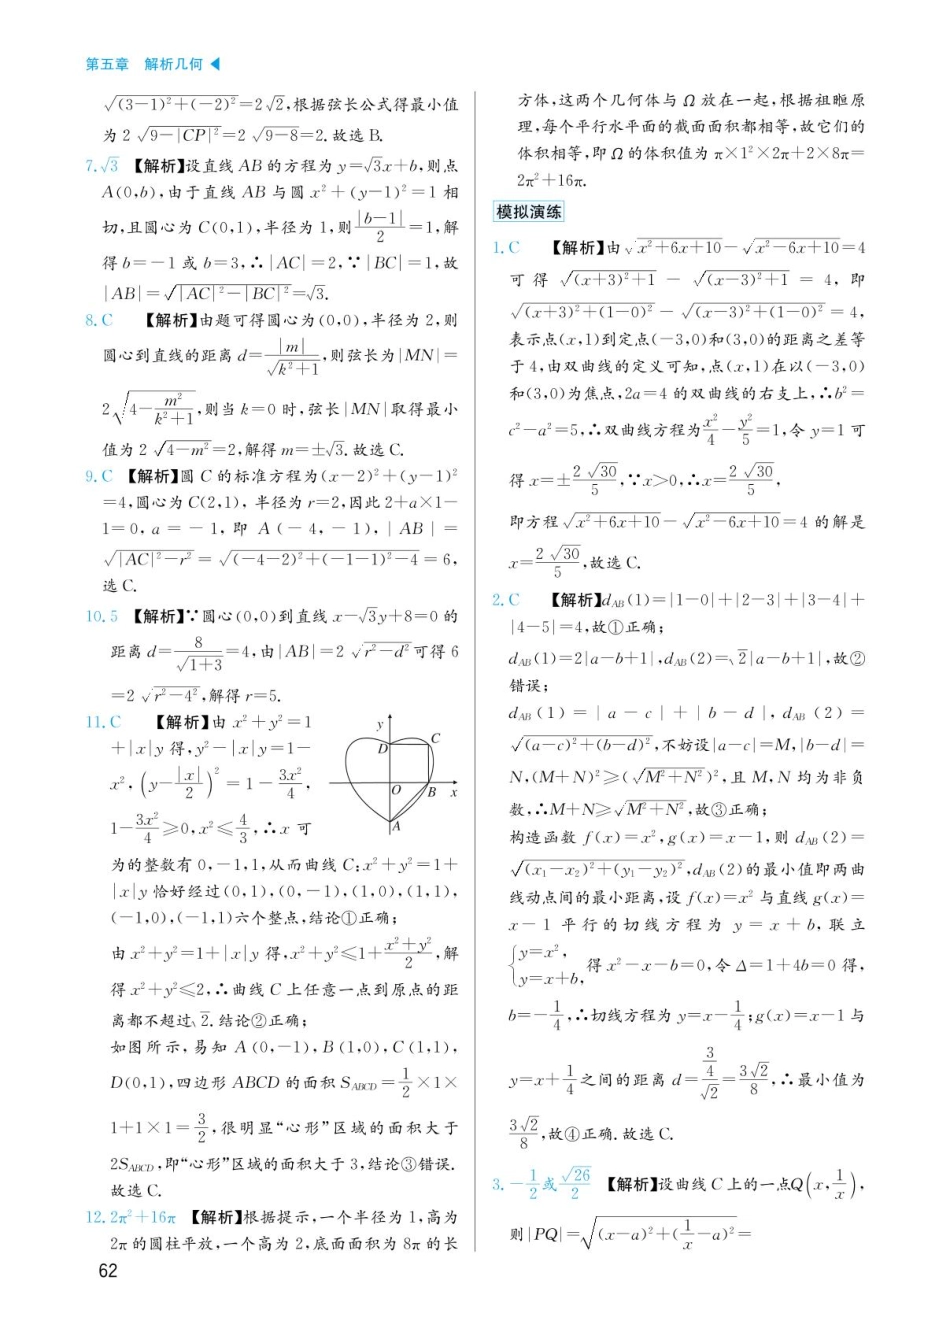 第五章 解析几何◀
√(3-1)²+(-2)²=2√2,根据弦长公式得最小值
为 2√9-|CP|²=2√9-8=2.故选 B.
7.√3 【解析】设直线 AB 的方程为 y=√3x+b,则点
A(0,b),由于直线 AB 与圆 x²+(y-1)²=1 相
切,且圆心为 C(0,1),半径为 1,则|b-1|/2=1,解
得 b=-1 或 b=3,∴|AC|=2,∵|BC|=1,故
|AB|=√|AC|²-|BC|²=√3.
8.C 【解析】由题可得圆心为(0,0),半径为 2,则
圆心到直线的距离 d=|m|/√k²+1,则弦长为|MN|=
2√4-m²/k²+1,则当 k=0 时,弦长|MN|取得最小
值为 2√4-m²=2,解得 m=±√3.故选 C.
9.C 【解析】圆 C 的标准方程为(x-2)²+(y-1)²
=4,圆心为 C(2,1),半径为 r=2,因此 2+a×1-
1=0,a=-1,即 A(-4,-1),|AB|=
√|AC|²-r²=√(-4-2)²+(-1-1)²-4=6,
选 C.
10.5 【解析】∵圆心(0,0)到直线 x-√3y+8=0 的
距离 d=8/√1+3=4,由|AB|=2√r²-d²可得 6
=2√r²-4²,解得 r=5.
11.C 【解析】由 x²+y²=1
+|x|y 得,y²-|x|y=1-
x²,(y-|x|/2)²=1-3x²/4,
1-3x²/4≥0,x²≤4/3,∴x 可
y
D
C
O
B
x
A
为的整数有 0,-1,1,从而曲线 C:x²+y²=1+
|x|y 恰好经过(0,1),(0,-1),(1,0),(1,1),
(-1,0),(-1,1)六个整点,结论①正确;
由 x²+y²=1+|x|y 得,x²+y²≤1+x²+y²/2,解
得 x²+y²≤2,∴曲线 C 上任意一点到原点的距
离都不超过√2.结论②正确;
如图所示,易知 A(0,-1),B(1,0),C(1,1),
D(0,1),四边形 ABCD 的面积 SABCD=1/2×1×
1+1×1=3/2,很明显“心形”区域的面积大于
2SABCD,即“心形”区域的面积大于 3,结论③错误.
故选 C.
12.2π²+16π 【解析】根据提示,一个半径为 1,高为
2π 的圆柱平放,一个高为 2,底面面积为 8π 的长
62
方体,这两个几何体与 Ω 放在一起,根据祖暅原
理,每个平行水平面的截面面积都相等,故它们的
体积相等,即 Ω 的体积值为 π×1²×2π+2×8π=
2π²+16π.
模拟演练
1.C 【解析】由√x²+6x+10-√x²-6x+10=4
可得√(x+3)²+1-√(x-3)²+1=4,即
√(x+3)²+(1-0)²-√(x-3)²+(1-0)²=4,
表示点(x,1)到定点(-3,0)和(3,0)的距离之差等
于 4,由双曲线的定义可知,点(x,1)在以(-3,0)
和(3,0)为焦点,2a=4 的双曲线的右支上,∴b²=
c²-a²=5,∴双曲线方程为x²/4-y²/5=1,令 y=1 可
得 x=±2√30/5,∵x>0,∴x=2√30/5,
即方程√x²+6x+10-√x²-6x+10=4 的解是
x=2√30/5,故选 C.
2.C 【解析】dAB(1)=|1-0|+|2-3|+|3-4|+
|4-5|=4,故①正确;
dAB(1)=2|a-b+1|,dAB(2)=√2|a-b+1|,故②
错误;
dAB(1)=|a-c|+|b-d|,dAB(2)=
√(a-c)²+(b-d)²,不妨设|a-c|=M,|b-d|=
N,(M+N)²≥(√M²+N²)²,且 M,N 均为非负
数,∴M+N≥√M²+N²,故③正确;
构造函数 f(x)=x²,g(x)=x-1,则 dAB(2)=
√(x₁-x₂)²+(y₁-y₂)²,dAB(2)的最小值即两曲
线动点间的最小距离,设 f(x)=x² 与直线 g(x)=
x-1 平行的切线方程为 y=x+b,联立
{y=x²,
y=x+b,得 x²-x-b=0,令 Δ=1+4b=0 得,
b=-1/4,∴切线方程为 y=x-1/4;g(x)=x-1 与
y=x+1/4之间的距离 d=3/4/√2=3√2/8,∴最小值为
3√2/8,故④正确.故选 C.
3.-1/2或√26/2 【解析】设曲线 C 上的一点Q(x,1/x),
则|PQ|=√(x-a)²+(1/x-a)²=